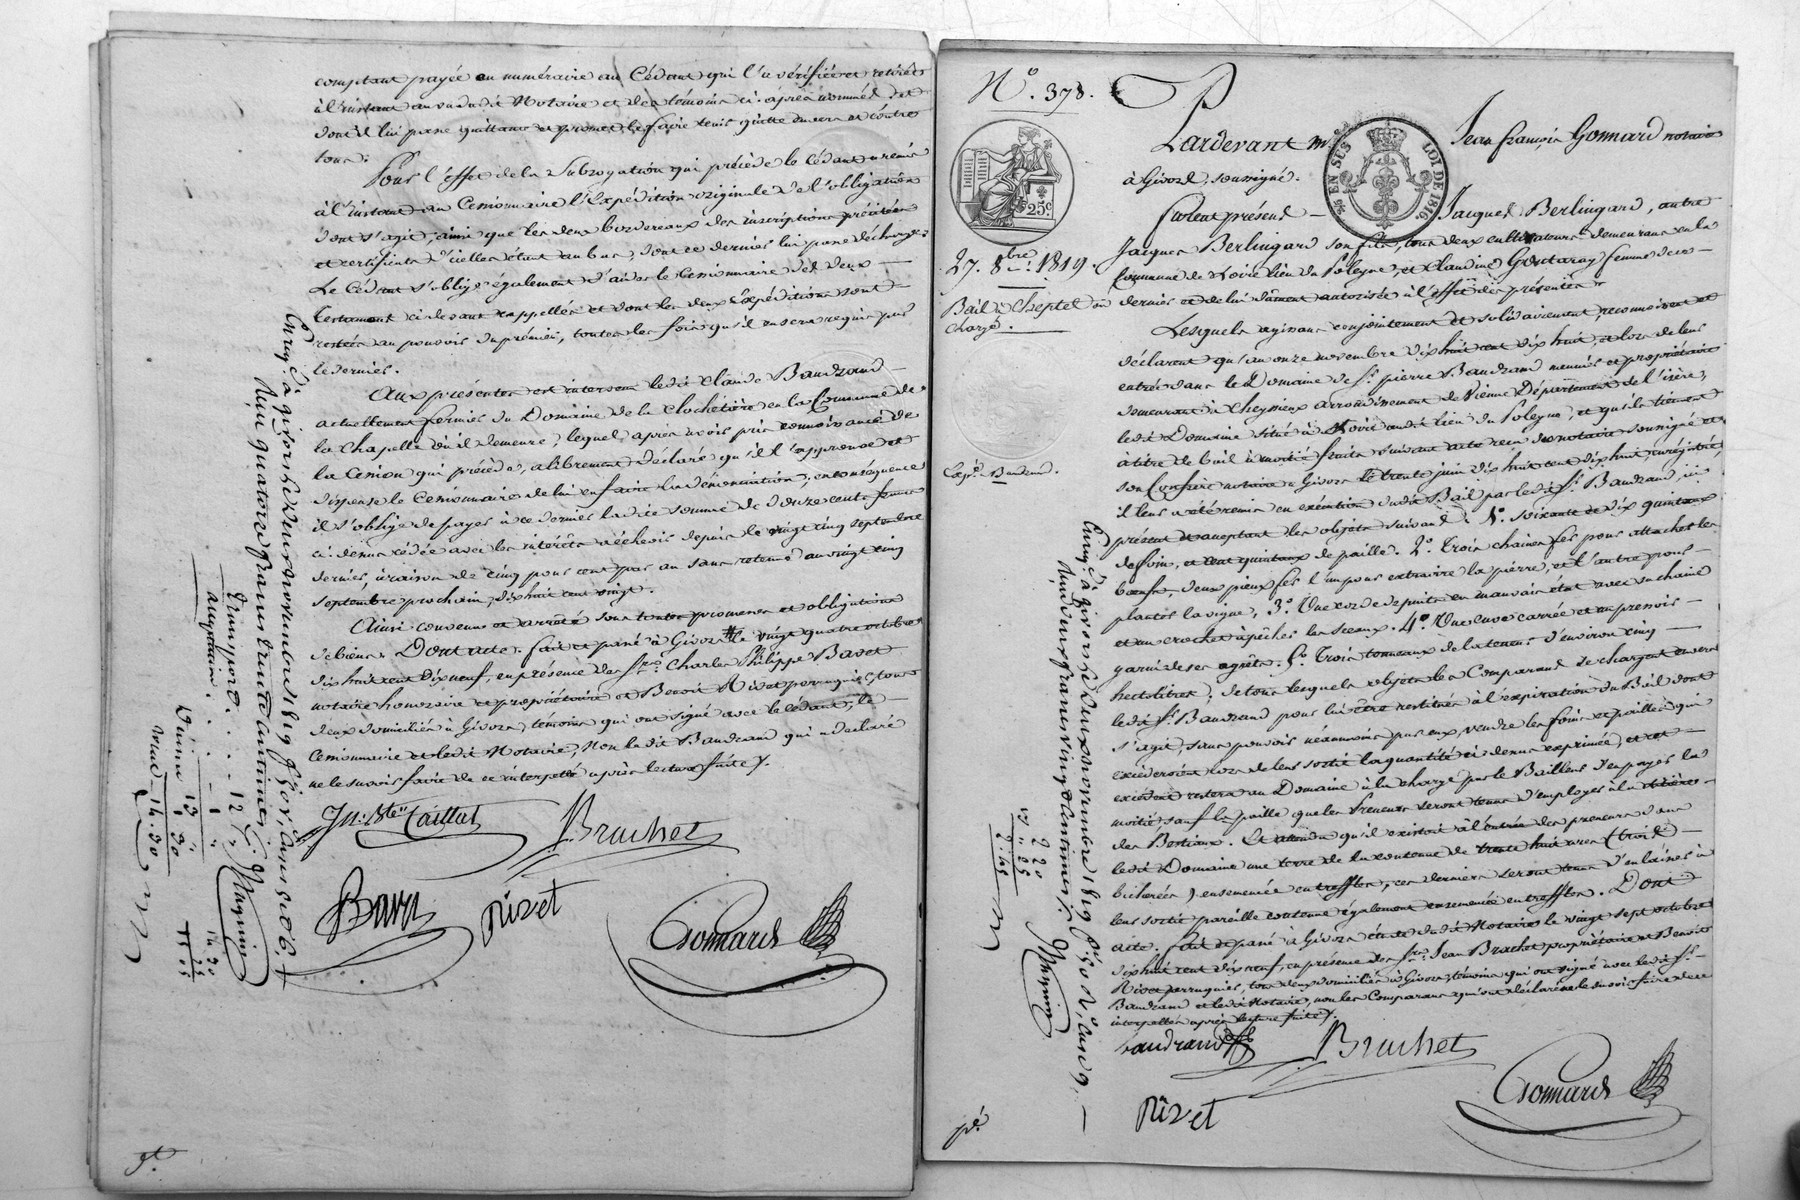 comptant payée en numéraire au Cédant qui l'a vérifiée et retirée
à l'instant au vu du dit Notaire et des témoins ci-après nommés
dont il lui passe quittance et promet le faire tenir quitte envers et contre
tous.
Pour l'effet de la subrogation qui précède le cédant a remis
à l'instant au Cessionnaire l'Expédition originale de l'obligation
dont s'agit, ainsi que les deux bordereaux des inscriptions précitées
et certificats d'icelles étant au bas, dont ce dernier lui passe décharge.
Le Cédant s'oblige également d'aider le Cessionnaire des deux
Testament ci devant rappellés et dont les deux Expéditions sont
restées au pouvoir du premier, toutes les fois qu'il en sera requis par
le dernier.
Aux présentes est intervenu ledit Claude Baudrand
actuellement fermier du Domaine de la Clochetière en la Commune de
la Chapelle où il demeure, lequel, après avoir pris connoissance de
la Cession qui précède, a librement déclaré qu'il l'approuve et
dispense le Cessionnaire de lui en faire la dénonciation; en conséquence
il s'oblige de payer à ce dernier ladite somme de douze cents francs
ci-dessus cédée avec les intérêts à échoir depuis le vingt cinq septembre
dernier, à raison de cinq pour cent par an sans retenue au vingt cinq
septembre prochain, dix huit cent vingt.
Ainsi convenu et arrêté sous toutes promesses et obligations
de biens. Dont acte. fait et passé à Givors le vingt quatre octobre
dix huit cent dix neuf, en présence des Srs. Charles Philippe Bavet
notaire honoraire et propriétaire et Benoit Rivet perruquier, tous
deux domiciliés à Givors, témoins qui ont signé avec le cédant, le
Cessionnaire et ledit Notaire, Non ledit Baudrand qui a déclaré
ne le savoir faire de ce interpellé après lecture faite.
Jn. Bte. Caillat
Brachet
Rivet
Gonnard
Enregé. à givors le deux novembre 1819
Reçu quatorze francs trente centimes
N.º 378.
27. 8bre. 1819.
Bail à Cheptel en
charge.
25c
EN SUS
LOI DE 1816.
Pardevant me. Jean françois Gonnard notaire
à Givors, soussigné.
furent présens Jacques Berlingard, autre
Jacques Berlingard son fils, tous deux cultivateurs demeurans en la
Commune de Loire lieu du Poleyne, et Claudine Goutaray femme de ce
dernier et de lui dûment autorisée à l'effet des présentes
Lesquels agissans conjointement et solidairement, reconnoissent et
déclarent qu'au onze novembre dix huit cent dix huit, et lors de leur
entrée dans le Domaine de Sr. pierre Baudrand meunier et propriétaire
demeurant à Cheyssieux arrondissement de Vienne Département de l'isère,
ledit Domaine situé à Loire audit lieu du Poleyne, et qu'ils tiennent
à titre de bail à moitié fruits suivant acte reçu du notaire soussigné et
son Confrère notaire à Givors le trente juin dix huit cent dix huit, enrégistré,
il leur a été remis en exécution dudit Bail par ledit Sr. Baudrand, ici
présent et acceptant les objets suivans: 1º. soixante dix quintaux
de foin, et cent quintaux de paille. 2º. Trois chaines fer pour attacher les
bœufs, deux pieux fer l'un pour extraire la pierre, et l'autre pour
planter la vigne, 3º. Une corde de puits en mauvais état avec sa chaine
et un crochet à pêcher les sceaux. 4º. Une cuve carrée et un pressoir
garni de ses agrêts. 5º. Trois tonneaux de la teneur d'environ cinq
hectolitres; de tous lesquels objets les Comparans se chargent envers
ledit Sr. Baudrand pour lui être restitués à l'expiration du Bail dont
s'agit, sans pouvoir néanmoins par eux, vendre les foins et pailles qui
excéderoient lors de leur sortie la quantité ci-dessus exprimée, et cet
excédent restera au Domaine à la charge par le Bailleur d'en payer la
moitié, sauf la paille que les Preneurs seront tenus d'employer à la litière
des Bestiaux. Et attendu qu'il existoit à l'entrée des preneurs dans
ledit Domaine une terre de la contenue de trente huit ares (trois
bicherées) ensemencée en treffles, ces derniers seront tenus d'en laisser à
leur sortie pareille contenue également ensemencée en treffles. Dont
acte. fait et passé à Givors étude dudit Notaire le vingt sept octobre
dix huit cent dix neuf, en présence des Srs. Jean Brachet propriétaire et Benoit
Rivet perruquier, tous deux domiciliés à Givors, témoins qui ont signé avec ledit Sr.
Baudrand et ledit Notaire, non les Comparans qui ont déclaré ne le savoir faire de ce
interpellés après lecture faite.
baudrand
Brachet
Rivet
Gonnard
Enregé. à givors le deux novembre 1819
Reçu deux francs vingt centimes.